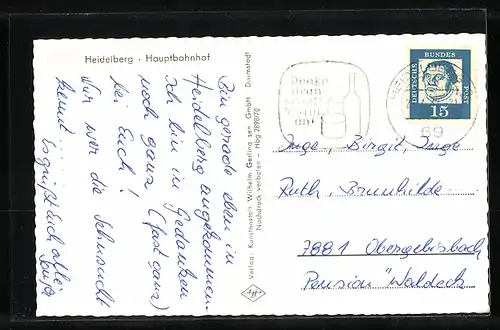 Heidelberg - Hauptbahnhof
Bin gerade eben in
Heidelberg angekommen.
Ich bin in Gedanken
noch ganz (fast ganz)
bei Euch!
Nur wer die Sehnsucht
kennt....
Es grüßt Euch alle
Verlag: Kunstanstalt Wilhelm Gerling sen GmbH Darmstadt
Nachdruck verboten - Hbg 2898/70
Denke
dran
DEUTSCHE
BUNDES
POST
15
69
Inge, Birgit, Inge
Ruth, Brunhilde....
7881 Obergebisbach
Pension "Waldeck